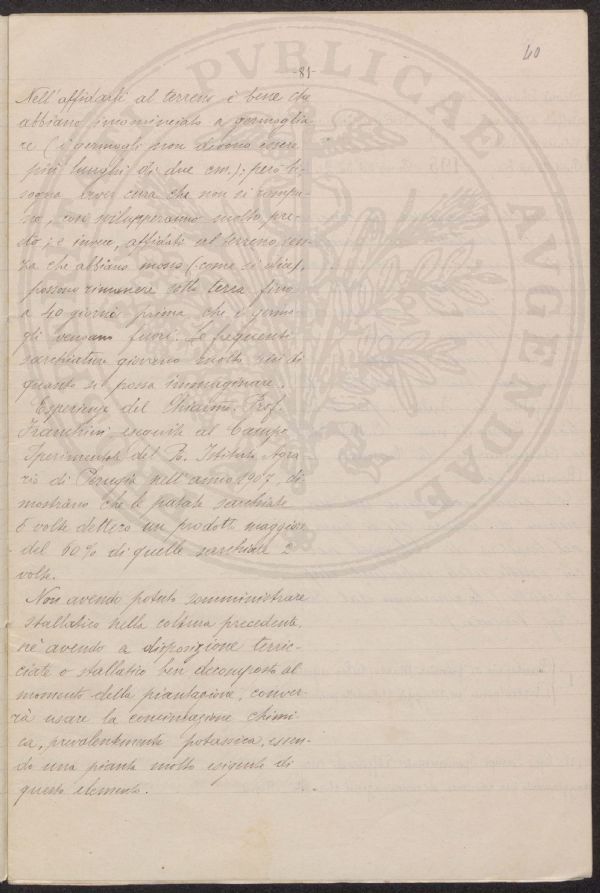 40
-81-
PVBLICAE AVGENDAE
Nell'affidarli al terreno è bene che
abbiano incominciato a germoglia-
re (i germogli non devono essere
più lunghi di due cm.); però bi-
sogna aver cura che non si rompa-
no, così svilupperanno molto pre-
sto; se invece, affidati al terreno sen-
za che abbiano mosso (come si dice),
possono rimanere sotto terra fino
a 40 giorni prima che i germo-
gli vengano fuori. Le frequenti
sarchiature giovano molto più di
quanto si possa immaginare.
Esperienze del Chiarmo. Prof.
Franchini eseguite al Campo
Sperimentale del R. Istituto Agra-
rio di Perugia nell'anno 1907, di-
mostrano che le patate sarchiate
6 volte dettero un prodotto maggiore
del 60% di quelle sarchiate 2
volte.
Non avendo potuto somministrare
stallatico nella coltura precedente,
nè avendo a disposizione terric-
ciate o stallatico ben decomposto al
momento della piantagione, conver-
rà usare la concimazione chimi-
ca, prevalentemente potassica, essen-
do una pianta molto esigente di
questo elemento.